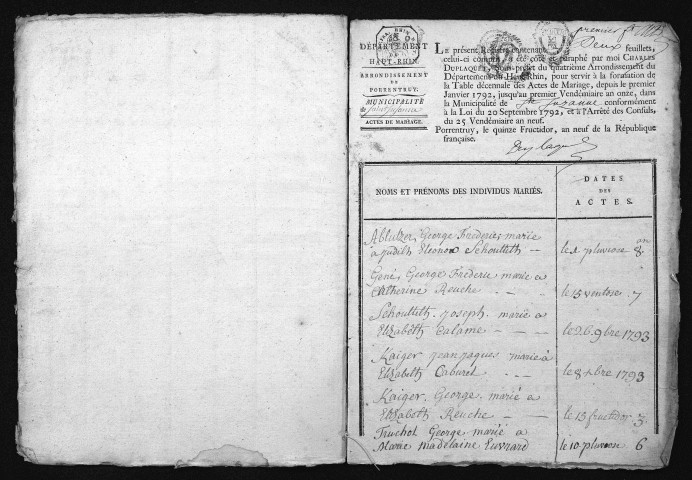 premier
DÉPARTEMENT
DU
HAUT-RHIN.
ARRONDISSEMENT
DE
PORRENTRUY.
MUNICIPALITÉ
de
ACTES DE MARIAGE.
LE présent Registre contenant Deux feuillets,
celui-ci compris, a été coté et paraphé par moi CHARLES
DUPLAQUET, Sous-préfet du quatrième Arrondissement du
Département du Haut-Rhin, pour servir à la formation de
la Table décennale des Actes de Mariage, depuis le premier
Janvier 1792, jusqu'au premier Vendémiaire an onze, dans
la Municipalité de Ste Suzanne conformément
à la Loi du 20 Septembre 1792, et à l'Arrêté des Consuls,
du 25 Vendémiaire an neuf.
Porrentruy, le quinze Fructidor, an neuf de la République
française.
Duplaquet
NOMS ET PRÉNOMS DES INDIVIDUS MARIÉS.
DATES
DES
ACTES.
George Frederic marie
a Judith Eleonor le pluviose an 8
George Frederic marie a
Catherine Reuche le 15 ventose 7
Joseph marié a
Elizabeth Calame le 26 9bre 1793
Kaiger Jean Jaques marié à
Elizabeth le 8 1793
Kaiger George marié a
Elizabeth Reuche le 13 fructidor 3
Truchot George marié a
Marie Madelaine Euvrard le 10 pluviose 6